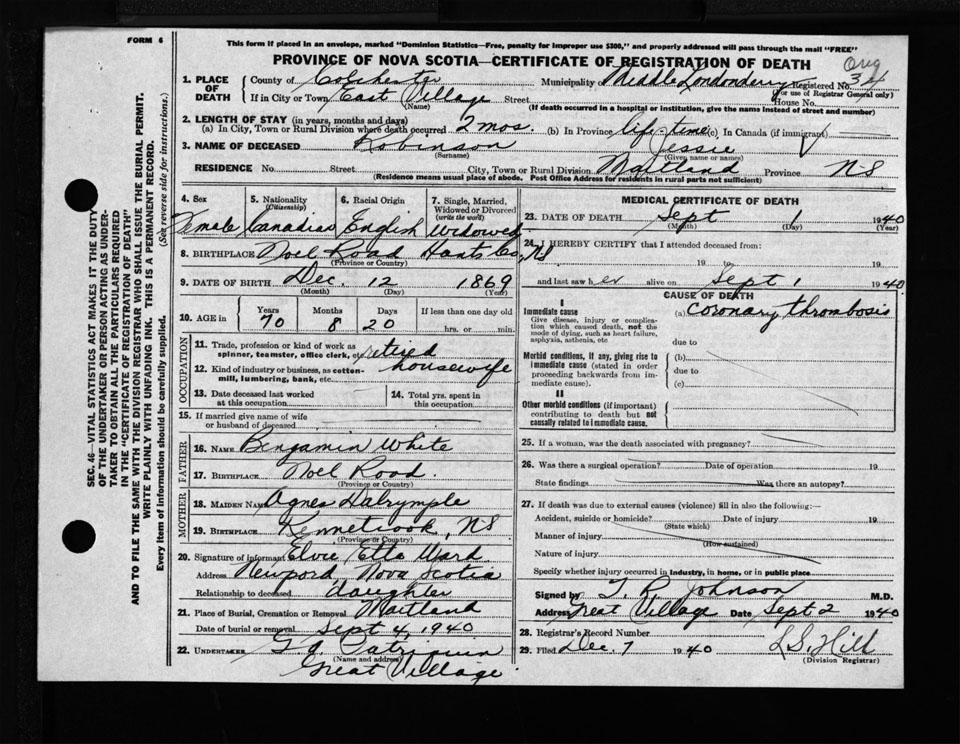 FORM 6
This form if placed in an envelope, marked "Dominion Statistics—Free, penalty for improper use $300," and properly addressed will pass through the mail "FREE"
PROVINCE OF NOVA SCOTIA—CERTIFICATE OF REGISTRATION OF DEATH
Orig
1. PLACE OF DEATH County of Colchester Municipality of Middle Londonderry Registered No. 34
(For use of Registrar General only)
If in City or Town East Village Street House No.
(Name) (If death occurred in a hospital or institution, give the name instead of street and number)
2. LENGTH OF STAY (in years, months and days)
(a) In City, Town or Rural Division where death occurred 2 mos. (b) In Province life-time (c) In Canada (if immigrant)
3. NAME OF DECEASED Robinson Jessie
(Surname) (Given name or names)
RESIDENCE No. Street City, Town or Rural Division Maitland Province NS
(Residence means usual place of abode. Post Office Address for residents in rural parts not sufficient)
4. Sex Female
5. Nationality (Citizenship) Canadian
6. Racial Origin English
7. Single, Married, Widowed or Divorced (write the word) Widowed
8. BIRTHPLACE Noel Road Hants Co, NS
(Province or Country)
9. DATE OF BIRTH Dec. 12 1869
(Month) (Day) (Year)
10. AGE in Years 70 Months 8 Days 20 If less than one day old hrs. or min.
OCCUPATION
11. Trade, profession or kind of work as spinner, teamster, office clerk, etc. retired
12. Kind of industry or business, as cotton-mill, lumbering, bank, etc. housewife
13. Date deceased last worked at this occupation
14. Total yrs. spent in this occupation
15. If married give name of wife or husband of deceased
FATHER
16. NAME Benjamin White
17. BIRTHPLACE Noel Road.
(Province or Country)
MOTHER
18. MAIDEN NAME Agnes Dalrymple
19. BIRTHPLACE Kennetcook, NS
(Province or Country)
20. Signature of informant Elvie Etta Ward
Address Newpord, Nova Scotia
Relationship to deceased daughter
21. Place of Burial, Cremation or Removal Maitland
Date of burial or removal Sept 4, 1940.
22. UNDERTAKER G. A. Patriquin
(Name and address)
Great Village
MEDICAL CERTIFICATE OF DEATH
23. DATE OF DEATH Sept 1 1940
(Month) (Day) (Year)
24. I HEREBY CERTIFY that I attended deceased from:
19 to 19
and last saw her alive on Sept 1 1940
CAUSE OF DEATH
I
Immediate cause
Give disease, injury or complication which caused death, not the mode of dying, such as heart failure, asphyxia, asthenia, etc
(a) coronary thrombosis
due to
Morbid conditions, if any, giving rise to immediate cause (stated in order proceeding backwards from immediate cause).
(b)
due to
(c)
II
Other morbid conditions (if important) contributing to death but not causally related to immediate cause.
25. If a woman, was the death associated with pregnancy?
26. Was there a surgical operation? Date of operation 19
State findings Was there an autopsy?
27. If death was due to external causes (violence) fill in also the following:—
Accident, suicide or homicide? Date of injury 19
(State which)
Manner of injury
(How sustained)
Nature of injury
Specify whether injury occurred in industry, in home, or in public place
Signed by T. R. Johnson M.D.
Address Great Village Date Sept 2 1940
28. Registrar's Record Number
29. Filed Dec. 7 1940 L S. Hill
(Division Registrar)
SEC. 46—VITAL STATISTICS ACT MAKES IT THE DUTY
OF THE UNDERTAKER OR PERSON ACTING AS UNDERTAKER
TO OBTAIN ALL THE PARTICULARS REQUIRED
IN THE "CERTIFICATE OF REGISTRATION OF DEATH"
AND TO FILE THE SAME WITH THE DIVISION REGISTRAR WHO SHALL ISSUE THE BURIAL PERMIT.
WRITE PLAINLY WITH UNFADING INK. THIS IS A PERMANENT RECORD.
Every item of information should be carefully supplied. (See reverse side for instructions.)